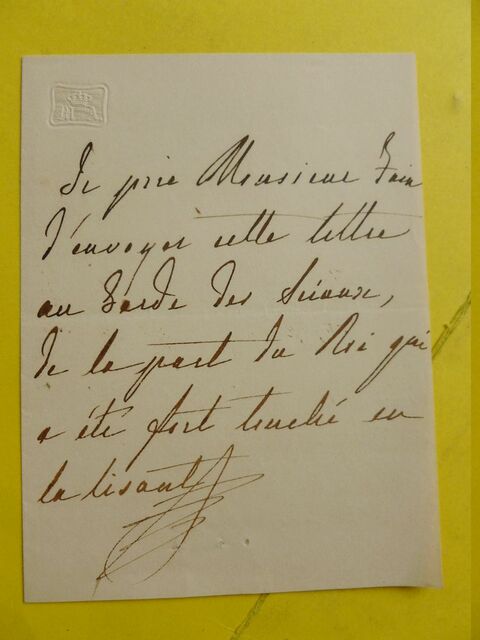 MA
Je prie Monsieur Fain
d'envoyer cette lettre
au Garde des Sceaux,
de la part du Roi qui
a été fort touché en
la lisant